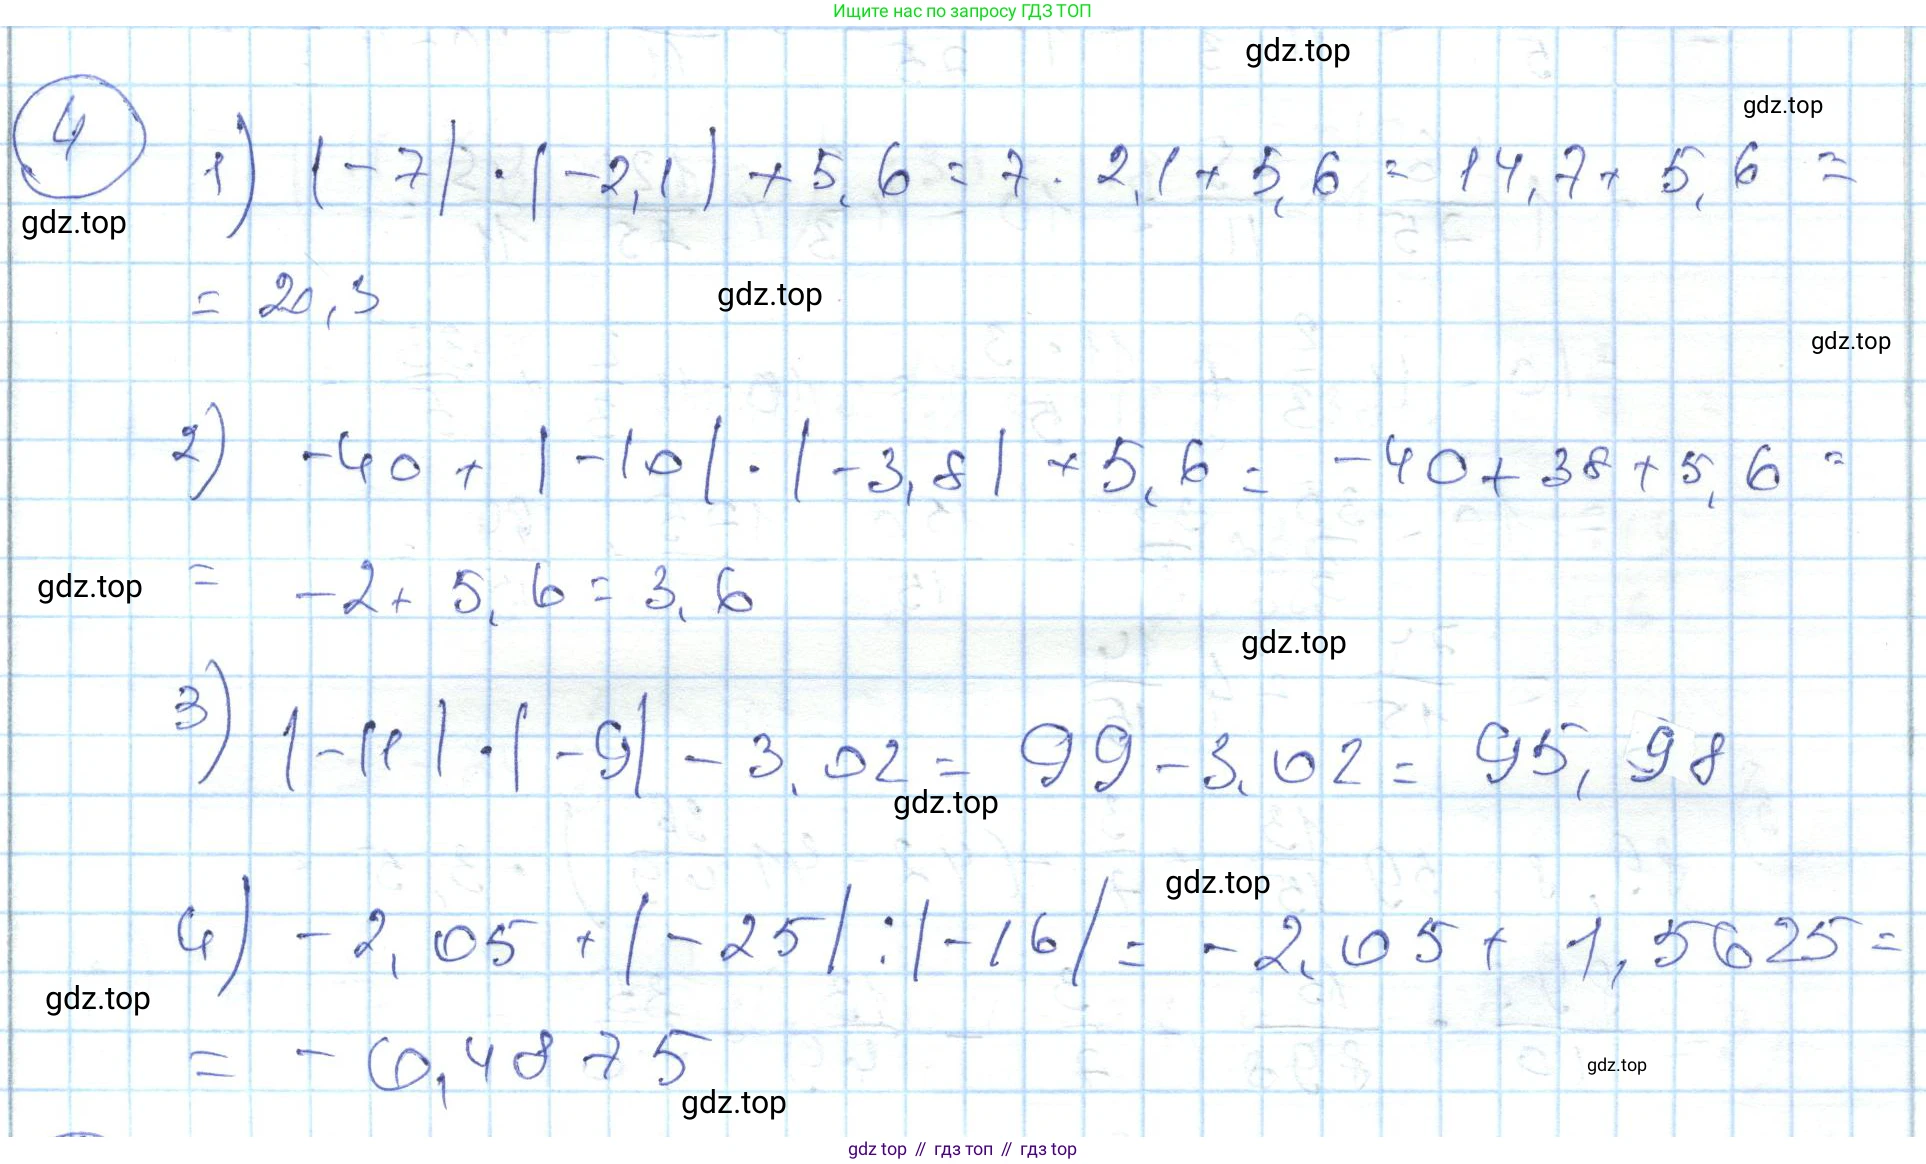 Ищите нас по запросу ГДЗ ТОП
gdz.top
gdz.top
4
1) |-7| · |-2,1| + 5,6 = 7 · 2,1 + 5,6 = 14,7 + 5,6 =
gdz.top
= 20,3
gdz.top
gdz.top
2) -40 + |-10| · |-3,8| + 5,6 = -40 + 38 + 5,6 =
gdz.top
= -2 + 5,6 = 3,6
gdz.top
3) |-11| · |-9| - 3,02 = 99 - 3,02 = 95,98
gdz.top
gdz.top
4) -2,05 + |-25| : |-16| = -2,05 + 1,5625 =
gdz.top
= -0,4875
gdz.top
gdz.top
gdz top // гдз топ // gdz top